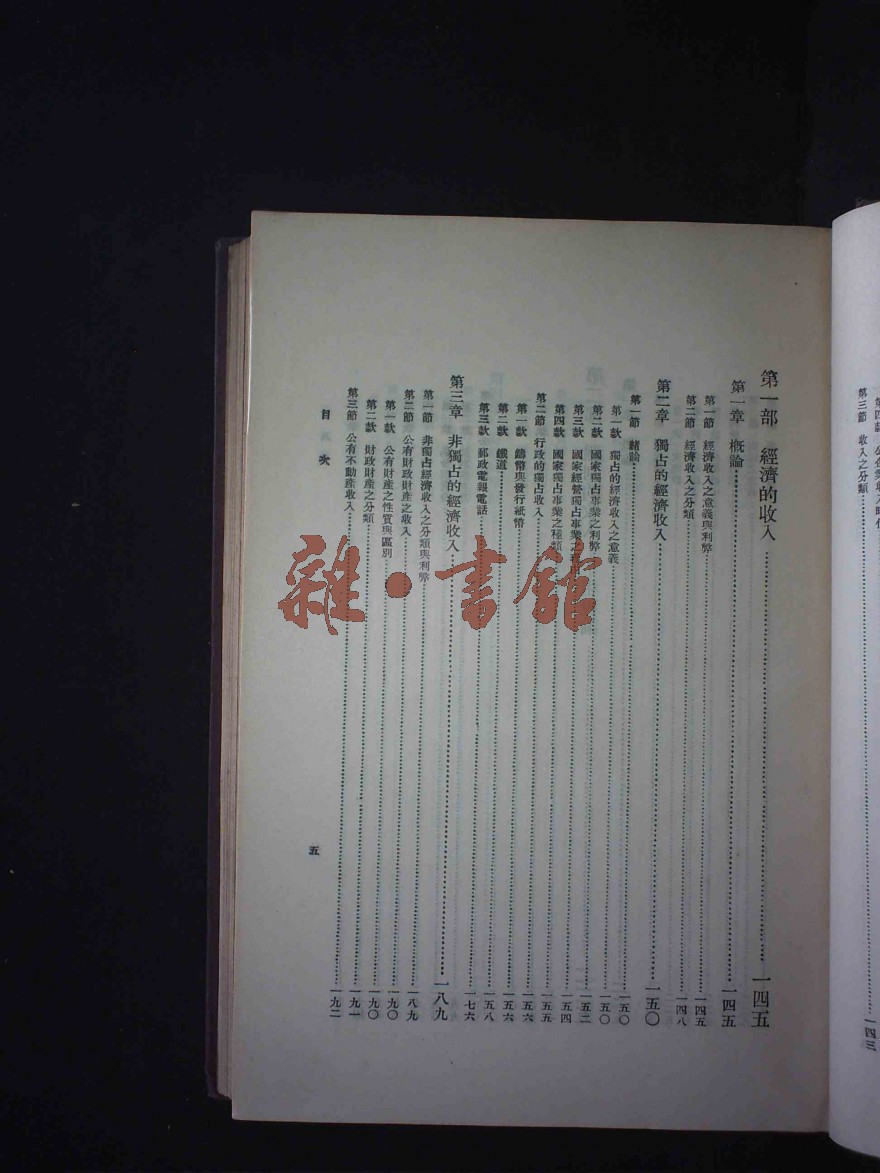 第三節 收入之分類……一四三
第一部 經濟的收入……一四五
第一章 概論……一四五
第一節 經濟收入之意義與利弊……一四五
第二節 經濟收入之分類……一四八
第二章 獨占的經濟收入……一五〇
第一節 緒論……一五〇
第一款 獨占的經濟收入之意義……一五〇
第二款 國家獨占事業之利弊……一五二
第三款 國家經營獨占事業之……一五四
第四款 國家獨占事業之種類……一五五
第二節 行政的獨占收入……一五六
第一款 鑄幣與發行紙幣……一五六
第二款 鐵道……一五八
第三款 郵政電報電話……一七六
第三章 非獨占的經濟收入……一八九
第一節 非獨占經濟收入之分類與利弊……一八九
第二節 公有財政財產之收入……一九〇
第一款 公有財產之性質與區別……一九〇
第二款 財政財產之分類……一九一
第三節 公有不動產收入……一九二
目次
五
雜·書館